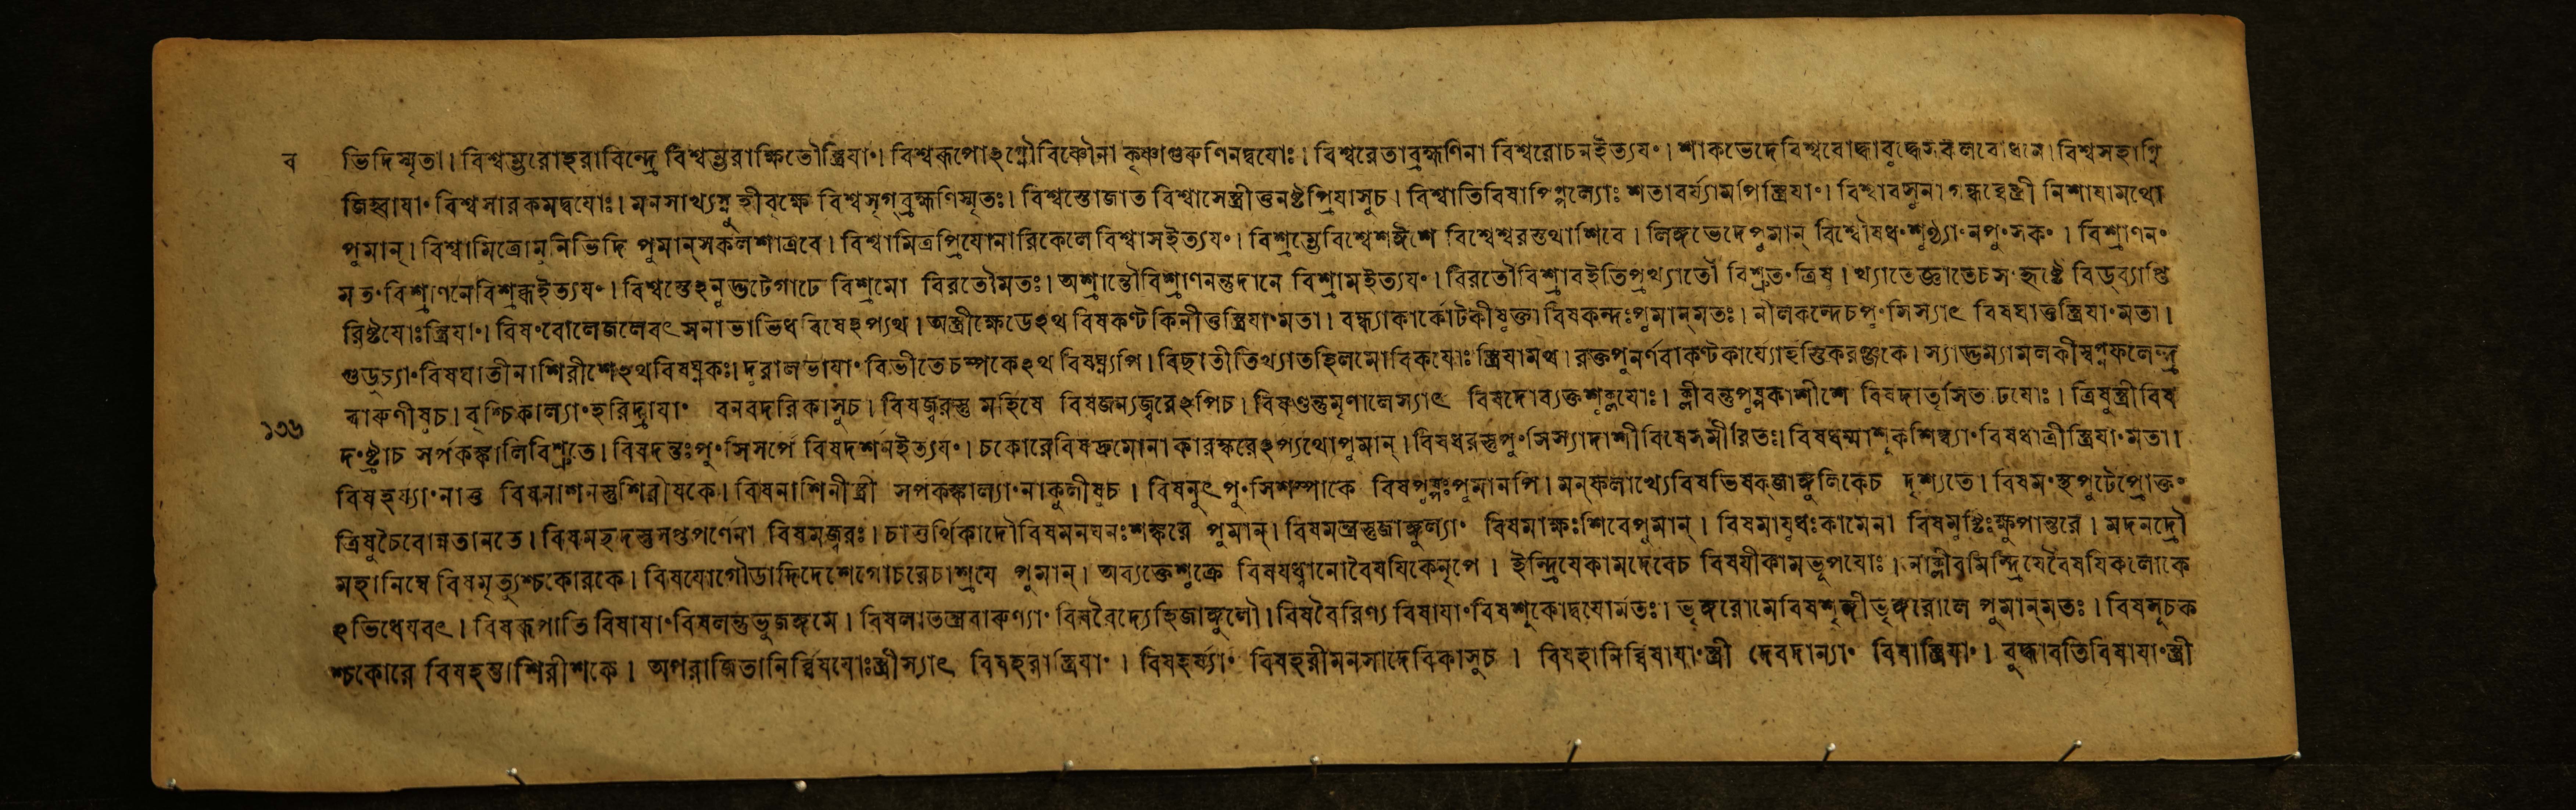 ব ভিদিস্মৃতা। বিশ্বম্ভরোহরাবিন্দ্রে বিশ্বম্ভরাক্ষিতৌস্ত্রিযাং। বিশ্বরূপোঽগ্নৌবিষ্ণৌনা কৃষ্ণাগুরুণিনদ্বযোঃ। বিশ্বরেতাব্রহ্মণিনা বিশ্বরোচনইত্যযং। শাকভেদেবিশ্ববোদ্ধাবুদ্ধেসকলবোধনে। বিশ্বসহাগ্নি
জিহ্বাযাং বিশ্বসারকমদ্বযোঃ। মনসাখ্যস্নুহীবৃক্ষে বিশ্বসৃগ্ব্রহ্মণিস্মৃতঃ। বিশ্বস্তোজাত বিশ্বাসেস্ত্রীত্তনষ্টপ্রিযাসুচ। বিশ্বাতিবিষাপিপ্পল্যোঃ শতাবর্য্যামপিস্ত্রিযাং। বিশ্বাবসুনা গন্ধর্ব্বেস্ত্রী নিশাযামথো
পুমান্। বিশ্বামিত্রোমুনিভিদি পুমান্সকলশাত্রবে। বিশ্বামিত্রপ্রিযোনারিকেলে বিশ্বাসইত্যযং। বিশ্রম্ভেবিশ্বেশঈশে বিশ্বেশ্বরস্তথাশিবে। লিঙ্গভেদেপুমান্ বিশ্বৌষধংশুণ্ঠ্যাংনপুংসকং। বিশ্রাণনং
মতংবিশ্রাণনেবিশ্রব্ধইত্যযং। বিশ্বস্তেঽনুদ্ভটেগাঢে বিশ্রমো বিরতৌমতঃ। অশ্রান্তৌবিশ্রাণনন্তুদানে বিশ্রামইত্যযং। বিরতৌবিশ্রাবইতিপ্রখ্যাতৌ বিশ্রুতংত্রিষু। খ্যাতেজ্ঞাতেচসংহৃষ্টে বিড্ব্যাপ্তি
রিষ্টযোঃস্ত্রিযাং। বিষংবোলেজলেবৎসনাভাভিধবিষেঽপ্যথ। অস্ত্রীক্ষেডেঽথ বিষকণ্টকিনীত্তস্ত্রিযাংমতা। বন্ধ্যাকার্কোটকীষূক্তা বিষকন্দঃপুমান্মতঃ। নীলকন্দেচপুংসিস্যাৎ বিষঘাত্তস্ত্রিযাংমতা।
গুডুচ্যাংবিষঘাতীনাশিরীশেঽথবিষঘ্নকঃ। দুরালভাযাং বিভীতেচম্পকেঽথ বিষঘ্ন্যপি। বিছাতীতিখ্যাতহিলমোবিকযোঃস্ত্রিযামথ। রক্তপুনর্ণবাকণ্টকার্য্যোর্হস্তিকরঞ্জকে। স্যাদ্ভূম্যামলকীস্বপ্নফলেন্দ্র
বারুণীষুচ। বৃশ্চিকাল্যাংহরিদ্রাযাং বনবদরিকাসুচ। বিষজ্বরস্তু মহিষে বিষজন্যজ্বরেঽপিচ। বিষণ্ডন্তুমৃণালেস্যাৎ বিষদোব্যক্তশুক্লযোঃ। ক্লীবন্তুপুষ্পকাশীশে বিষদাতৃসিত ঢযোঃ। ত্রিষুস্ত্রীবিষ
১৩৬ দংষ্ট্রাচ সর্পকঙ্কালিবিশ্রুতে। বিষদন্তঃপুংসিসর্পে বিষদর্শনইত্যযং। চকোরেবিষদ্রুমোনা কারস্করেঽপ্যথোপুমান্। বিষধরস্তুপুংসিস্যাদাশীবিষেসমীরিতঃ। বিষধর্ম্মাশূকশিম্ব্যাংবিষধাত্রীস্ত্রিযাংমতা।
বিষহর্য্যাংনাত্ত বিষনাশনস্তুশিরীষকে। বিষনাশিনীস্ত্রী সর্পকঙ্কাল্যাংনাকুলীষুচ। বিষনুৎপুংসিশম্পাকে বিষপুষ্পঃপুমানপি। মন্ফলাখ্যেবিষভিষক্জাঙ্গুলিকেচ দৃশ্যতে। বিষমংস্থপুটেপ্রোক্তং
ত্রিষুচৈবোন্নতানতে। বিষমচ্ছদস্তুসপ্তপর্ণেনা বিষমজ্বরঃ। চাতুর্থিকাদৌবিষমনযনঃশঙ্করে পুমান্। বিষমন্ত্রস্তুজাঙ্গুল্যাং বিষমাক্ষঃশিবেপুমান্। বিষমাযুধঃকামেনা বিষমুষ্টিঃক্ষুপান্তরে। মদনদ্রৌ
মহানিম্বে বিষমৃত্যুশ্চকোরকে। বিষযোগৌডাদিদেশেগোচরেচাশ্রযে পুমান্। অব্যক্তেশুক্রে বিষযধ্বানোবৈষযিকেনৃপে। ইন্দ্রিযেকামদেবেচ বিষযীকামভূপযোঃ। নাক্লীবমিন্দ্রিযেবৈষযিকলোকে
ঽভিধেযবৎ। বিষরূপাতিবিষাযাংবিষলন্তুভুজঙ্গমে। বিষলাতন্ত্রবারুণ্যাং বিষবৈদ্যেহিজাঙ্গুলৌ। বিষবৈরিণ্য বিষাযাংবিষশূকোদ্বযোর্মতঃ। ভৃঙ্গরোমেবিষশৃঙ্গীভৃঙ্গরোলে পুমান্মতঃ। বিষসূচক
শ্চকোরে বিষহন্তাশিরীশকে। অপরাজিতানির্ব্বিষযোঃস্ত্রীস্যাৎ বিষহরাস্ত্রিযাং। বিষহর্য্যাং বিষহরীমনসাদেবিকাসুচ। বিষহানির্ব্বিষাযাংস্ত্রী দেবদান্যাং বিষাস্ত্রিযাং। বুদ্ধাবতিবিষাযাংস্ত্রী